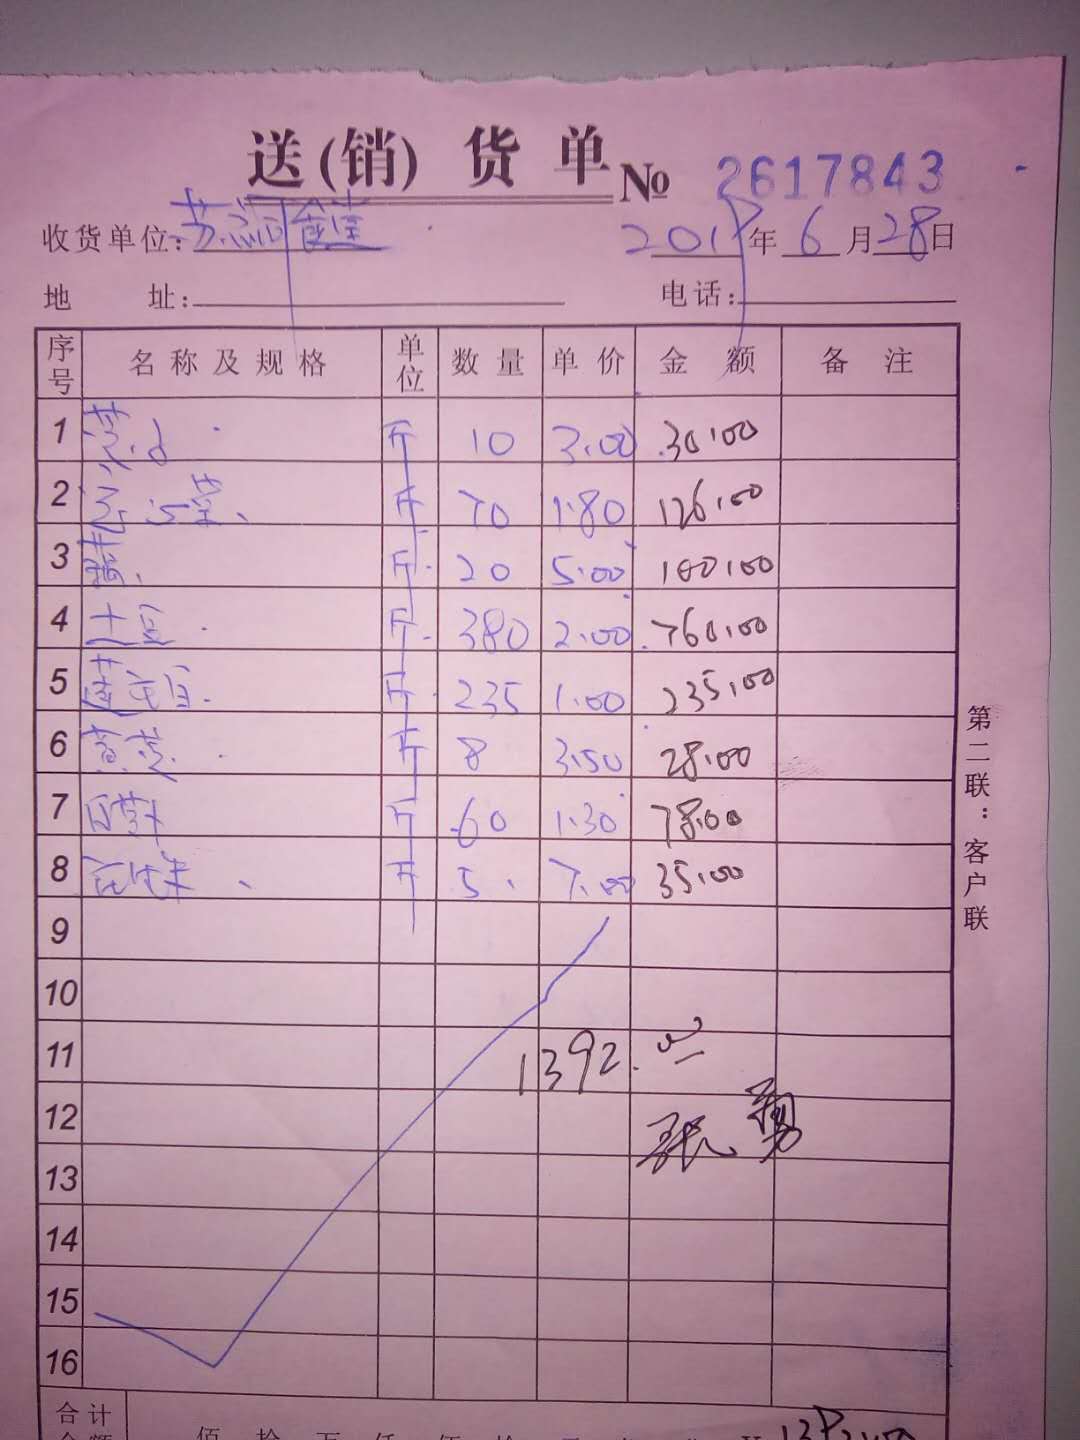 送(销)货单 № 2617843
收货单位: 食堂 2019年6月28日
地 址: 电话:
序号 名称及规格 单位 数量 单价 金额 备注
1 斤 10 3.00 30.00
2 斤 70 1.80 126.00
3 斤 20 5.00 100.00
4 土豆 斤 380 2.00 760.00
5 莲花白 斤 235 1.00 235.00
6 斤 8 3.50 28.00
7 斤 60 1.30 78.00
8 花生米 斤 5 7.00 35.00
9
10
11 1392.00
12 张勇
13
14
15
16
合计 佰 拾 万 仟 佰 拾
第二联：客户联